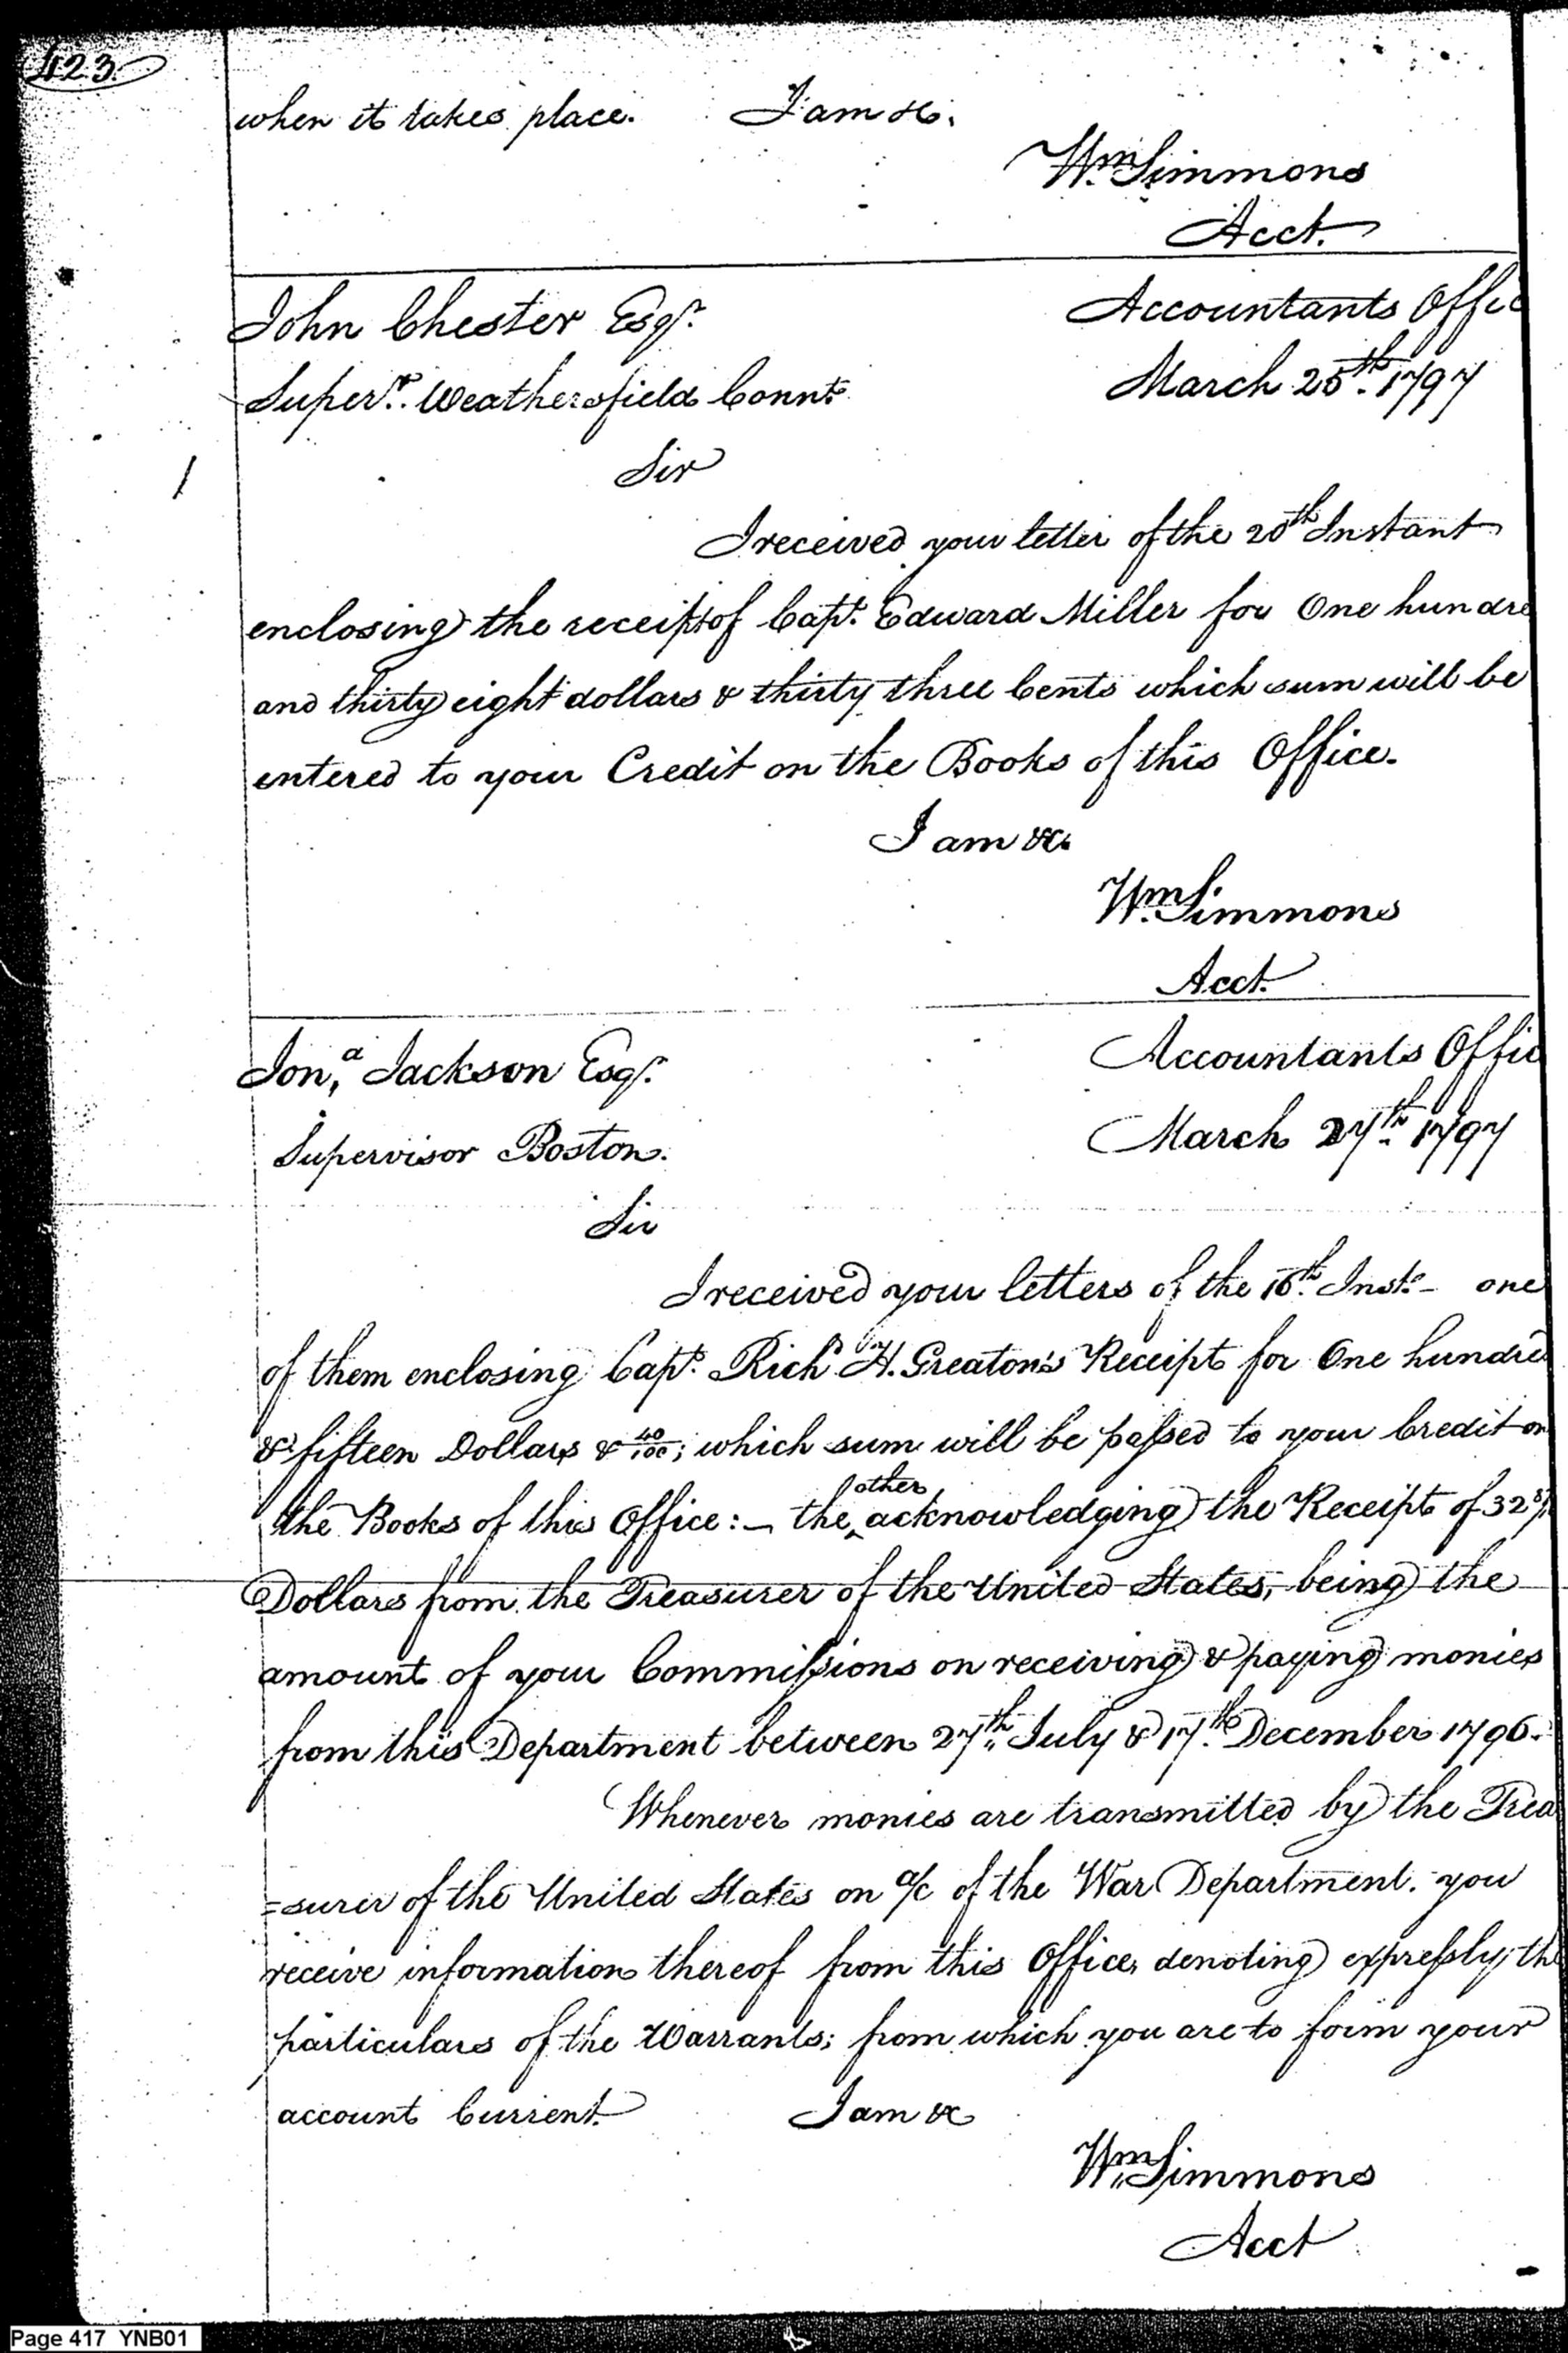 423.
when it takes place. I am &c.
Wm. Simmons
Acct.
John Chester Esqr. Accountants Offic
Superr. Weathersfield Connt. March 25th. 1797
Sir
I received your letter of the 20th Instant
enclosing the receipt of Capt. Edward Miller for One hundre
and thirty eight dollars & thirty three Cents which sum will be
entered to your Credit on the Books of this Office.
I am &c.
Wm. Simmons
Acct.
Jon,a Jackson Esqr. Accountants Offic
Supervisor Boston. March 27th. 1797
Sir
I received your letters of the 16th. Inst. - one
of them enclosing Capt. Richd. H. Greaton's Receipt for One hundre
& fifteen Dollars & 40/100; which sum will be passed to your Credit on
the Books of this Office: - the other acknowledging the Receipt of 32
Dollars from the Treasurer of the United States, being the
amount of your Commissions on receiving & paying monies
from this Department between 27th. July & 17th. December 1796.
Whenever monies are transmitted by the Trea
=surer of the United States on a/c of the War Department. you
receive information thereof from this Office, denoting expressly the
particulars of the Warrants; from which you are to form your
account Current. I am &c
Wm. Simmons
Acct
Page 417 YNB01